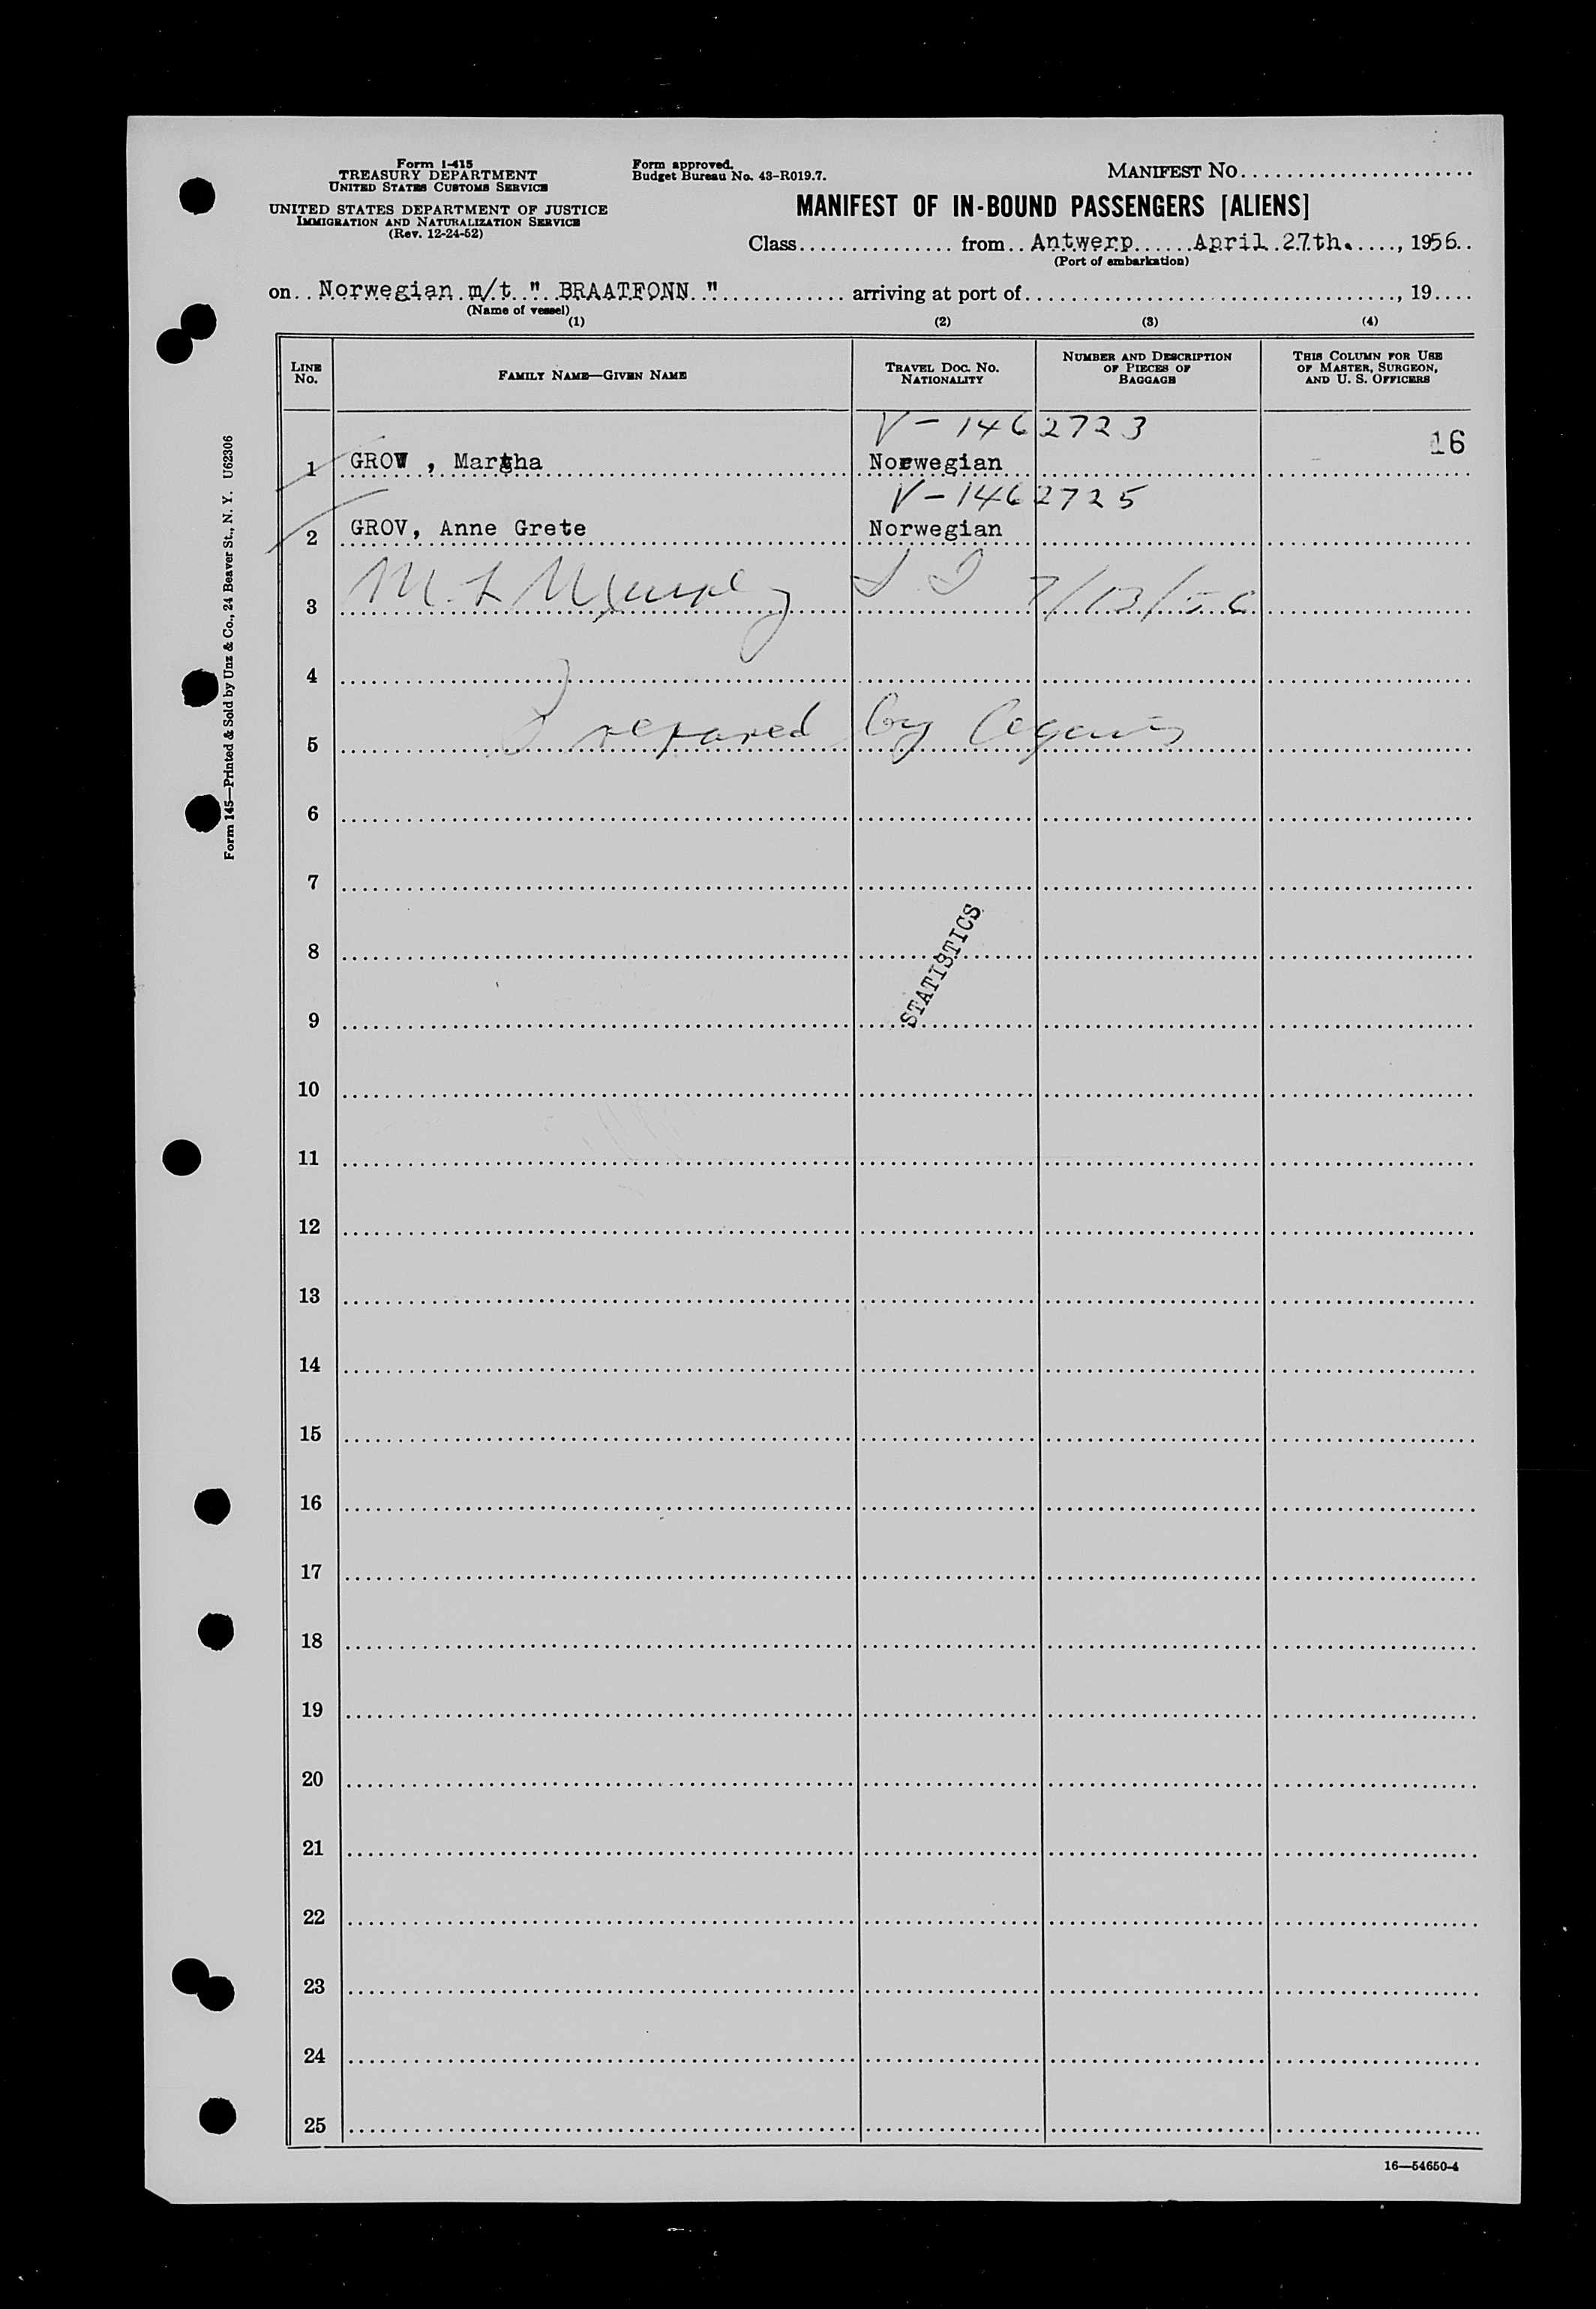 Form I-415
TREASURY DEPARTMENT
UNITED STATES CUSTOMS SERVICE
UNITED STATES DEPARTMENT OF JUSTICE
IMMIGRATION AND NATURALIZATION SERVICE
(Rev. 12-24-52)
Form approved.
Budget Bureau No. 43-R019.7.
MANIFEST NO.
MANIFEST OF IN-BOUND PASSENGERS [ALIENS]
Class from Antwerp April 27th., 1956
(Port of embarkation)
on Norwegian m/t " BRAATFONN " arriving at port of , 19
(Name of vessel)
(1) (2) (3) (4)
LINE NO. FAMILY NAME—GIVEN NAME TRAVEL DOC. NO. NATIONALITY NUMBER AND DESCRIPTION OF PIECES OF BAGGAGE THIS COLUMN FOR USE OF MASTER, SURGEON, AND U. S. OFFICERS
V-1462723
16
1 GROV , Martha Norwegian
V-1462725
2 GROV, Anne Grete Norwegian
3 7/13/56
4
5 Prepared by Agents
6
7
8
STATISTICS
9
10
11
12
13
14
15
16
17
18
19
20
21
22
23
24
25
16—54650-4
Form 145—Printed & Sold by Unz & Co., 24 Beaver St., N. Y. U62306